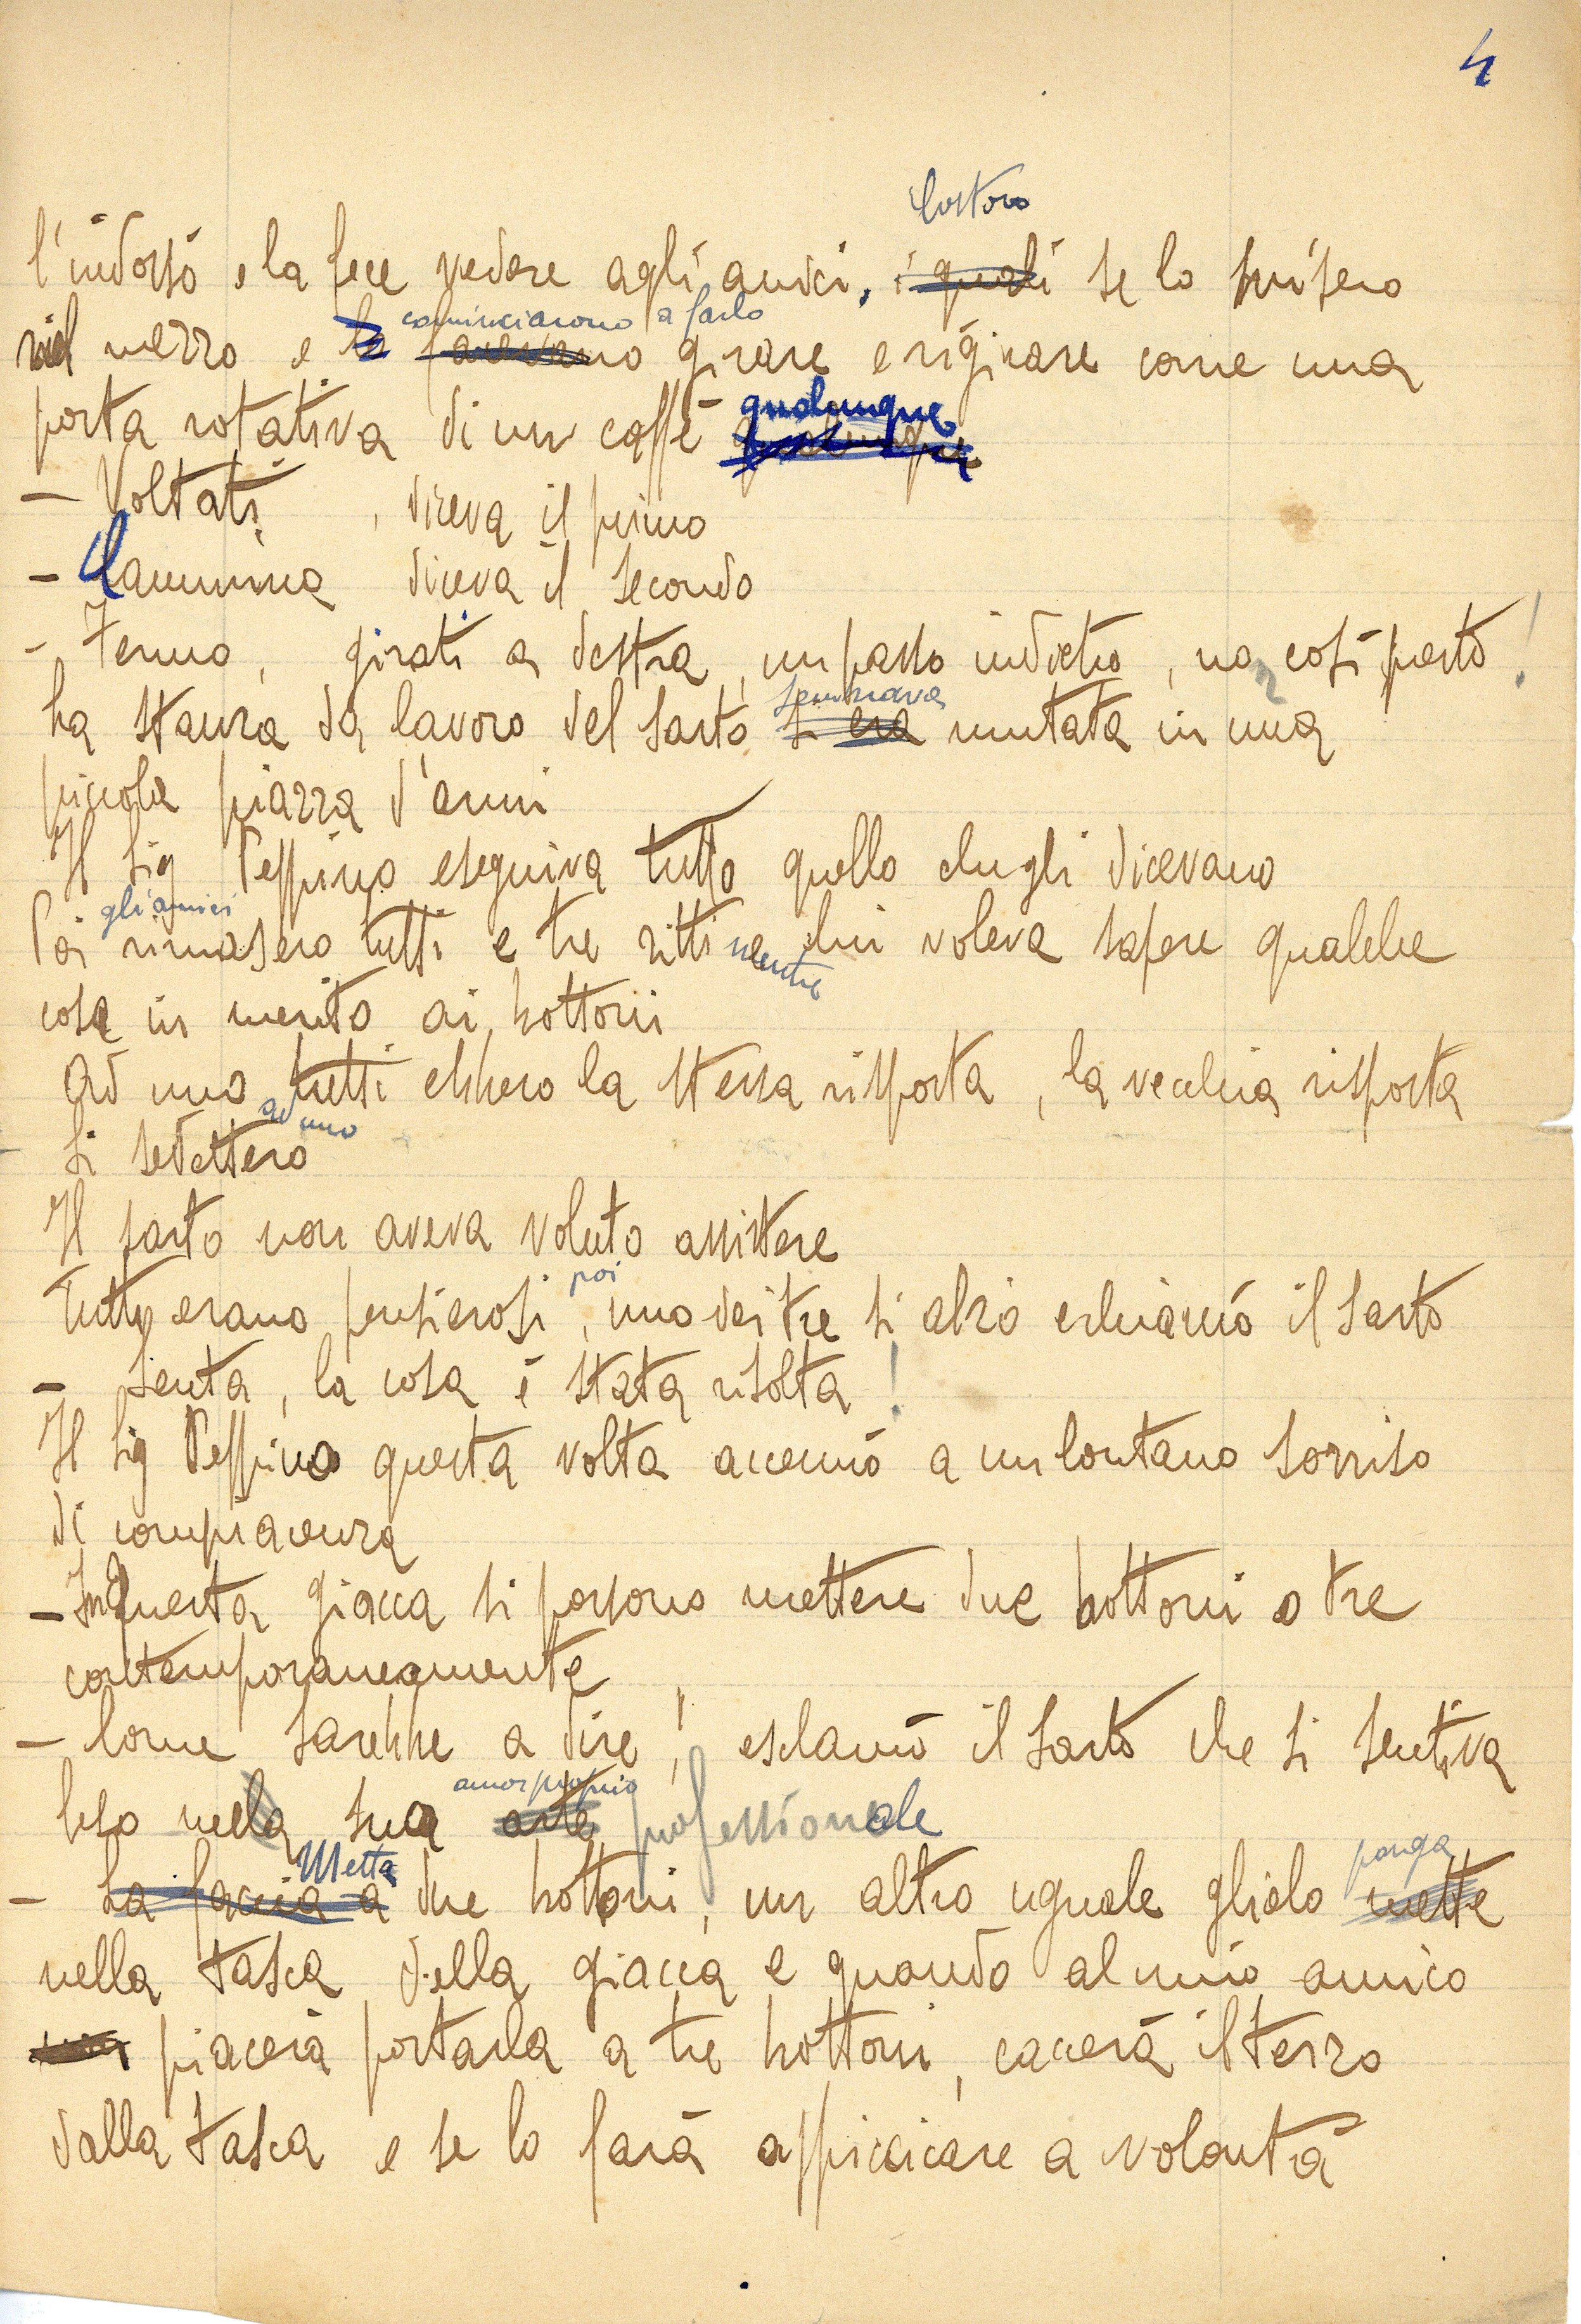 4
Costoro
l'indossò e la fece vedere agli amici, i quali se lo misero
cominciarono a farlo
nel mezzo e lo facevano girare e rigirare come una
qualunque
porta rotativa di un caffè qualunque
- Voltati, diceva il primo
- Cammina diceva il secondo
- Fermo, girati a destra, un passo indietro, no così presto!
sembrava
La stanza da lavoro del sarto si era mutata in una
piccola piazza d'armi
Il Sig Peppino eseguiva tutto quello che gli dicevano
gli amici
Poi rimasero tutti e tre zitti mentre lui voleva sapere qualche
cosa in merito ai bottoni
Ad uno tutti ebbero la stessa risposta, la vecchia risposta
ad uno
Si sedettero
Il sarto non aveva voluto assistere
poi
Tutti erano pensierosi, uno dei tre si alzò e chiamò il sarto
- Senta, la cosa è stata risolta!
Il Sig Peppino questa volta accennò a un lontano sorriso
di compiacenza
- In questa giacca si possono mettere due bottoni o tre
contemporaneamente
- Come sarebbe a dire, esclamò il sarto che si sentiva
amor proprio
leso nella sua arte professionale
Metta
ponga
- La faccia a due bottoni, un altro uguale glielo mette
nella tasca della giacca e quando al mio amico
non piacerà portarla a tre bottoni, caccerà il terzo
dalla tasca e se lo farà appiccicare a volontà